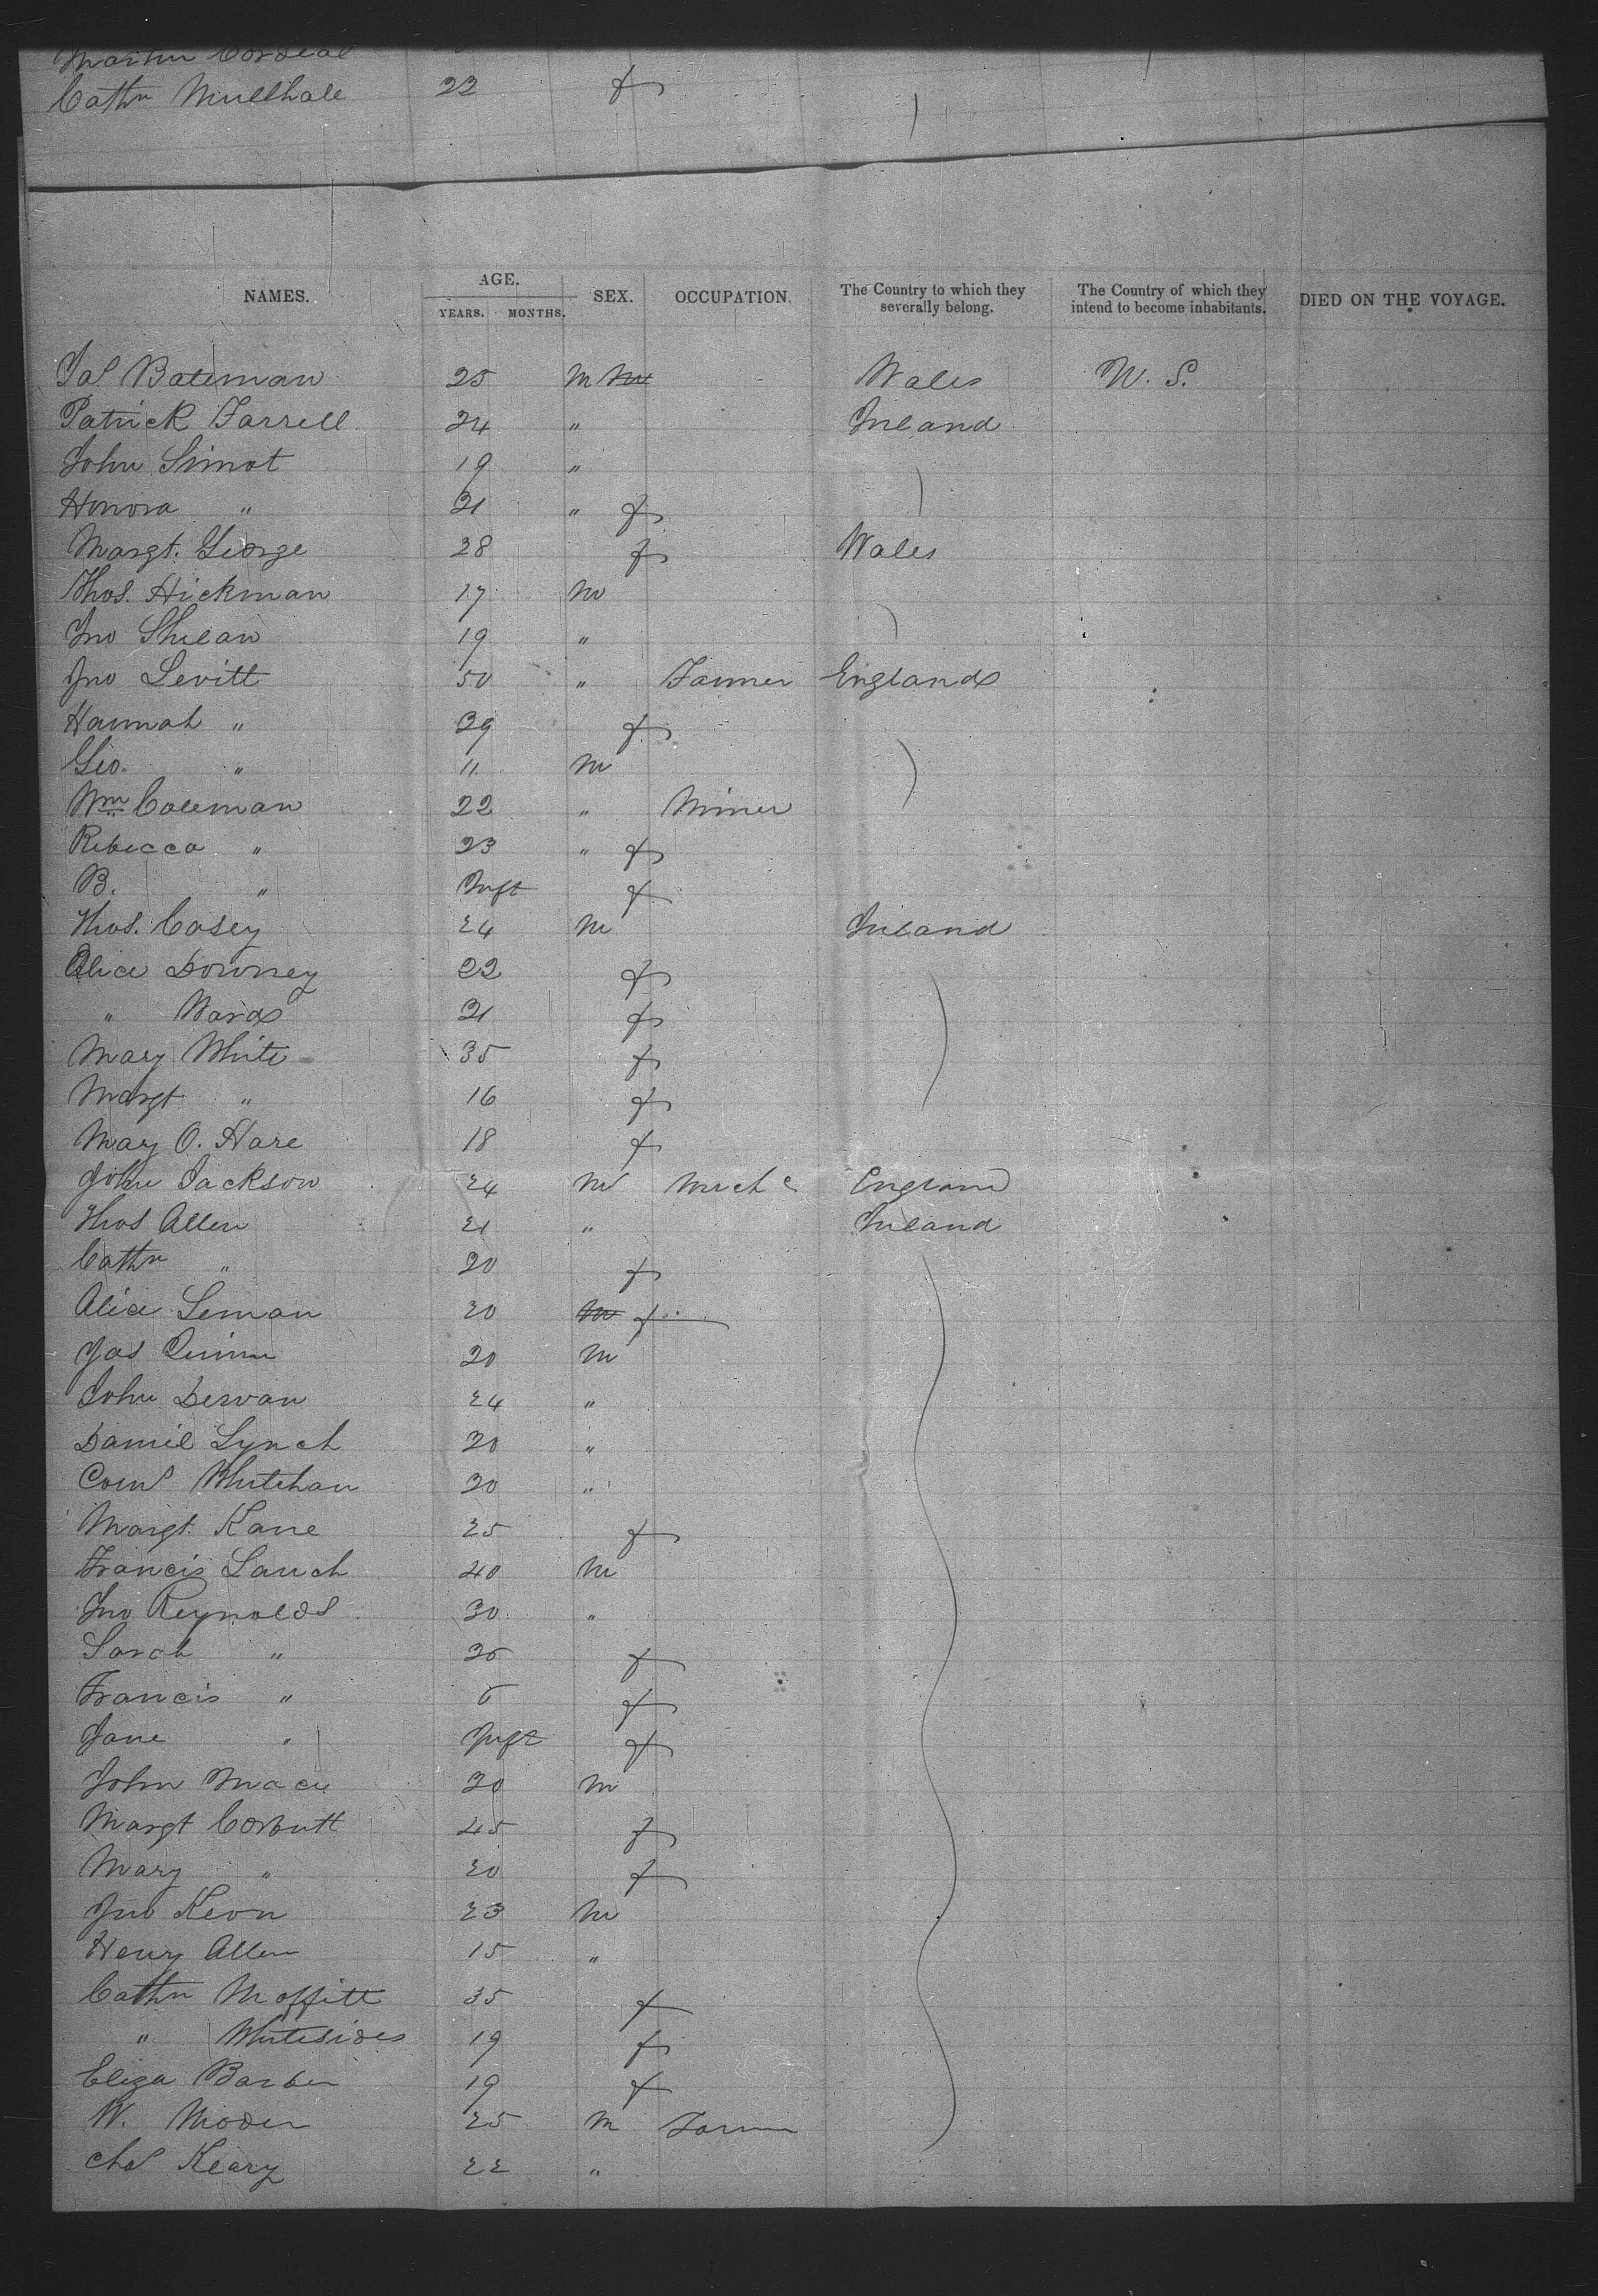 Martin Cordeal
Cathn Mullhale 22 f
NAMES. AGE. YEARS. MONTHS. SEX. OCCUPATION. The Country to which they severally belong. The Country of which they intend to become inhabitants. DIED ON THE VOYAGE.
Jas Bateman 25 m Wales U. S.
Patrick Farrell 24 " Ireland
John Sinnot 19 "
Honora " 21 " f
Margt. George 28 f Wales
Thos. Hickman 17 m
Jno Shean 19 "
Jno Levitt 50 " Farmer England
Hannah " 39 f
Geo. " 11 m
Wm Coleman 22 " Miner
Rebecca " 23 " f
B. " Inft f
Thos. Casey 24 m Ireland
Alice Downey 22 f
" Ward 21 f
Mary White 35 f
Margt " 16 f
Mary O. Hare 18 f
John Jackson 24 m Mech c England
Thos Allen 21 " Ireland
Cathn " 20 f
Alice Leman 20 m f
Jas Quinn 20 m
John Dervan 24 "
Daniel Lynch 20 "
Corns Whitehan 20 "
Margt. Kane 25 f
Francis Lauch 40 m
Jno Reynolds 30 "
Sarah " 25 f
Francis " 5 f
Jane " Inft f
John Mace 20 m
Margt Corbutt 45 f
Mary " 20 f
Jno Keon 23 m
Henry Allen 15 "
Cathn Moffitt 35 f
" Whitesides 19 f
Eliza Barber 19 f
W. Moder 25 m Farm
Chas Keary 22 "